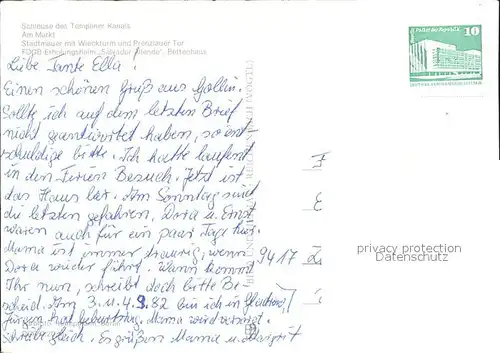 Schleuse des Templiner Kanals
Am Markt
Stadtmauer mit Wieckturm und Prenzlauer Tor
FDGB-Erholungsheim „Salvador Allende“, Bettenhaus
10
Liebe Tante Ella!
Einen schönen Gruß aus Gollin.
Sollte ich auf dem letzten Brief
nicht geantwortet haben, so ent=
schuldige bitte. Ich hatte laufend
in den Ferien Besuch. Jetzt ist
das Haus leer. Am Sonntag sind
die letzten gefahren, Dora u. Ernst
waren auch für ein paar Tage hier.
Mama ist immer traurig, wenn
Dora wieder fährt. Wann kommt
Ihr nun, schreibt doch bitte Be=
scheid. Am 3. u. 4. 9. 82 bin ich in
Jürgen hat Geburtstag. Mama wird versorgt.
Schreibe gleich. Es grüßen Mama u. Margrit
9417
privacy protection
Datenschutz